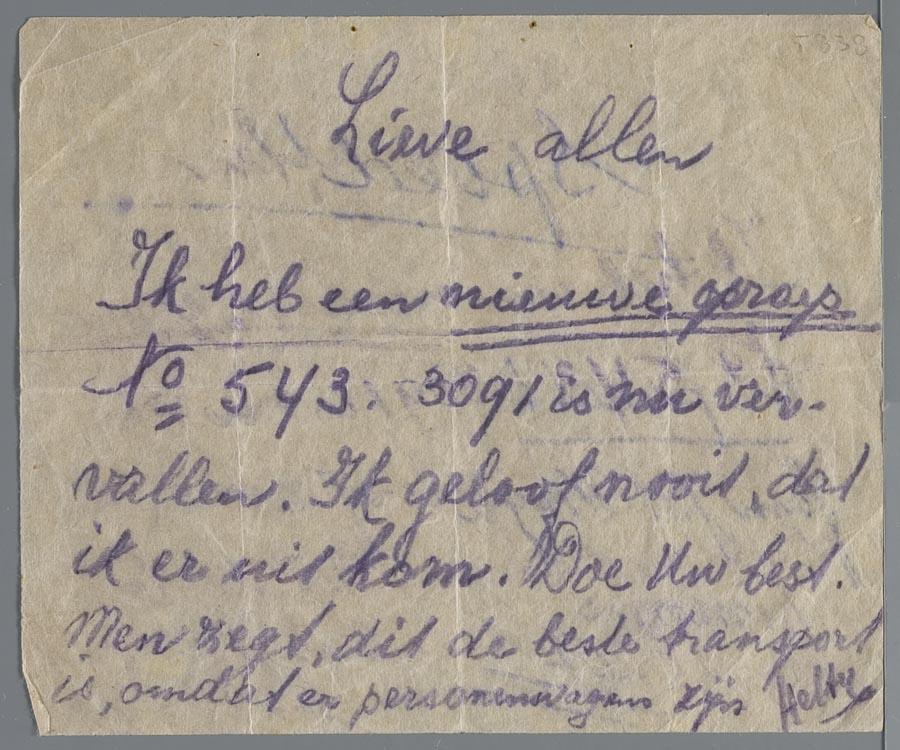 5338
Lieve allen
Ik heb een nieuwe
No 543. 3091 is nu ver-
vallen. Ik geloof nooit, dat
ik er uit kom. Doe Uw best.
Men zegt, dit de beste transport
is, omdat er personenwagens zijn Hetty